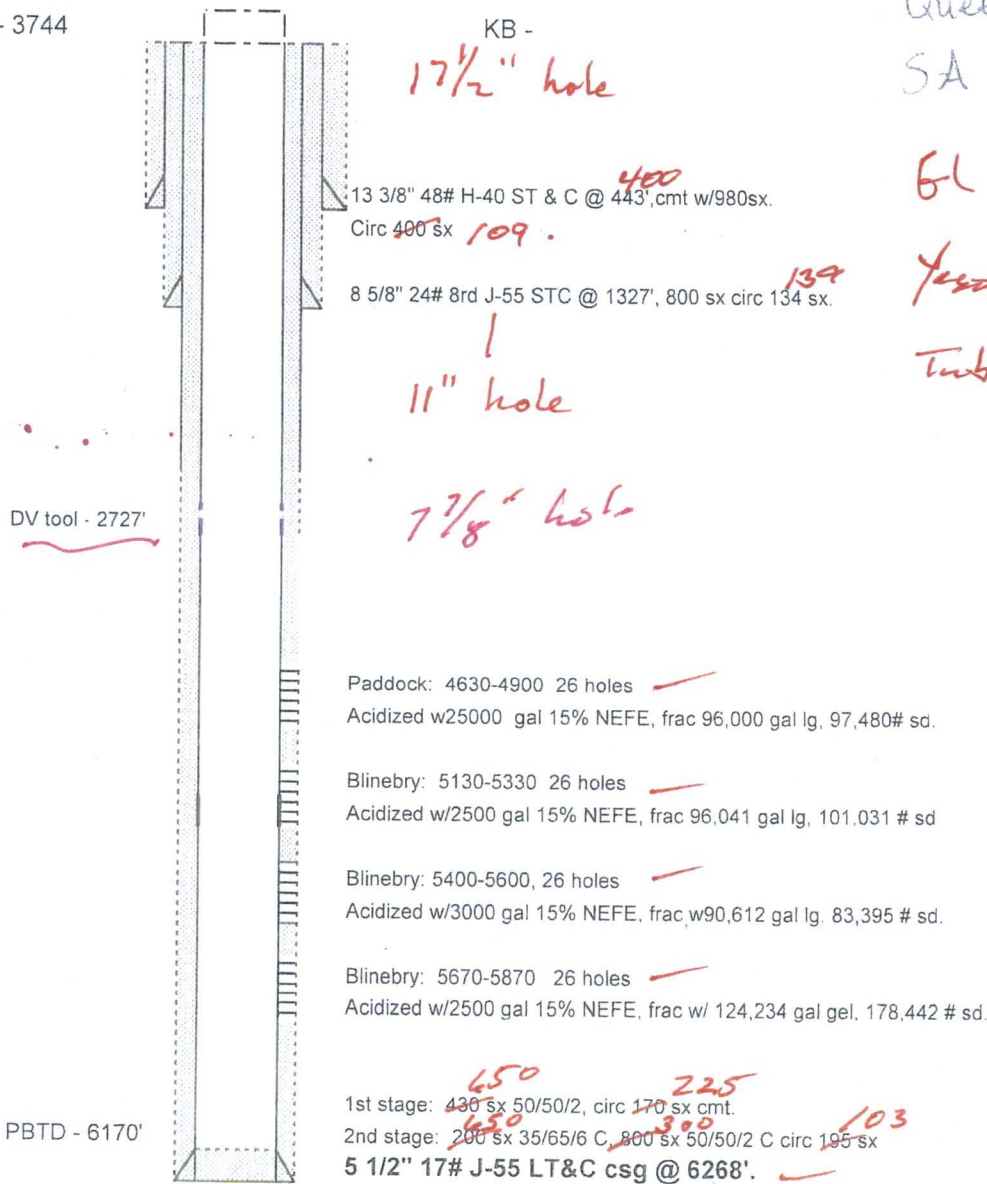 - 3744
KB -
SA
17 1/2" hole
400
13 3/8" 48# H-40 ST & C @ 443',cmt w/980sx.
Circ 400 sx 109 .
134
8 5/8" 24# 8rd J-55 STC @ 1327', 800 sx circ 134 sx.
11" hole
DV tool - 2727'
7 7/8" hole
Paddock: 4630-4900 26 holes
Acidized w25000 gal 15% NEFE, frac 96,000 gal lg, 97,480# sd.
Blinebry: 5130-5330 26 holes
Acidized w/2500 gal 15% NEFE, frac 96,041 gal lg, 101,031 # sd
Blinebry: 5400-5600, 26 holes
Acidized w/3000 gal 15% NEFE, frac w90,612 gal lg. 83,395 # sd.
Blinebry: 5670-5870 26 holes
Acidized w/2500 gal 15% NEFE, frac w/ 124,234 gal gel, 178,442 # sd.
650 225
1st stage: 430 sx 50/50/2, circ 170 sx cmt.
650 300 103
PBTD - 6170'
2nd stage: 200 sx 35/65/6 C, 800 sx 50/50/2 C circ 195 sx
5 1/2" 17# J-55 LT&C csg @ 6268'.